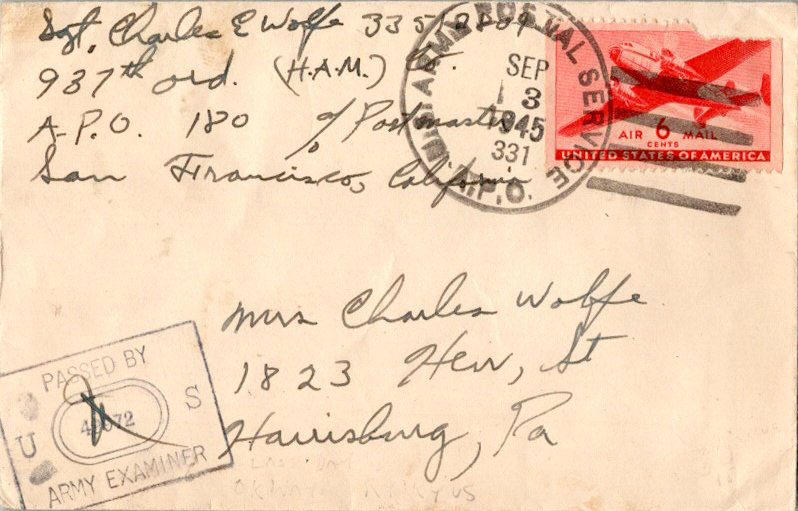 Sgt. Charles E Wolfe
937th Ord. (H.A.M.) Co.
A-P.O. 180 c/o Postmaster
San Francisco, California
U.S. ARMY POSTAL SERVICE
SEP
3
1945
331
A.P.O.
AIR 6 MAIL
CENTS
UNITED STATES OF AMERICA
Mrs Charles Wolfe
1823 Herr, St
Harrisburg, Pa
PASSED BY
U S
ARMY EXAMINER
LAST DAY